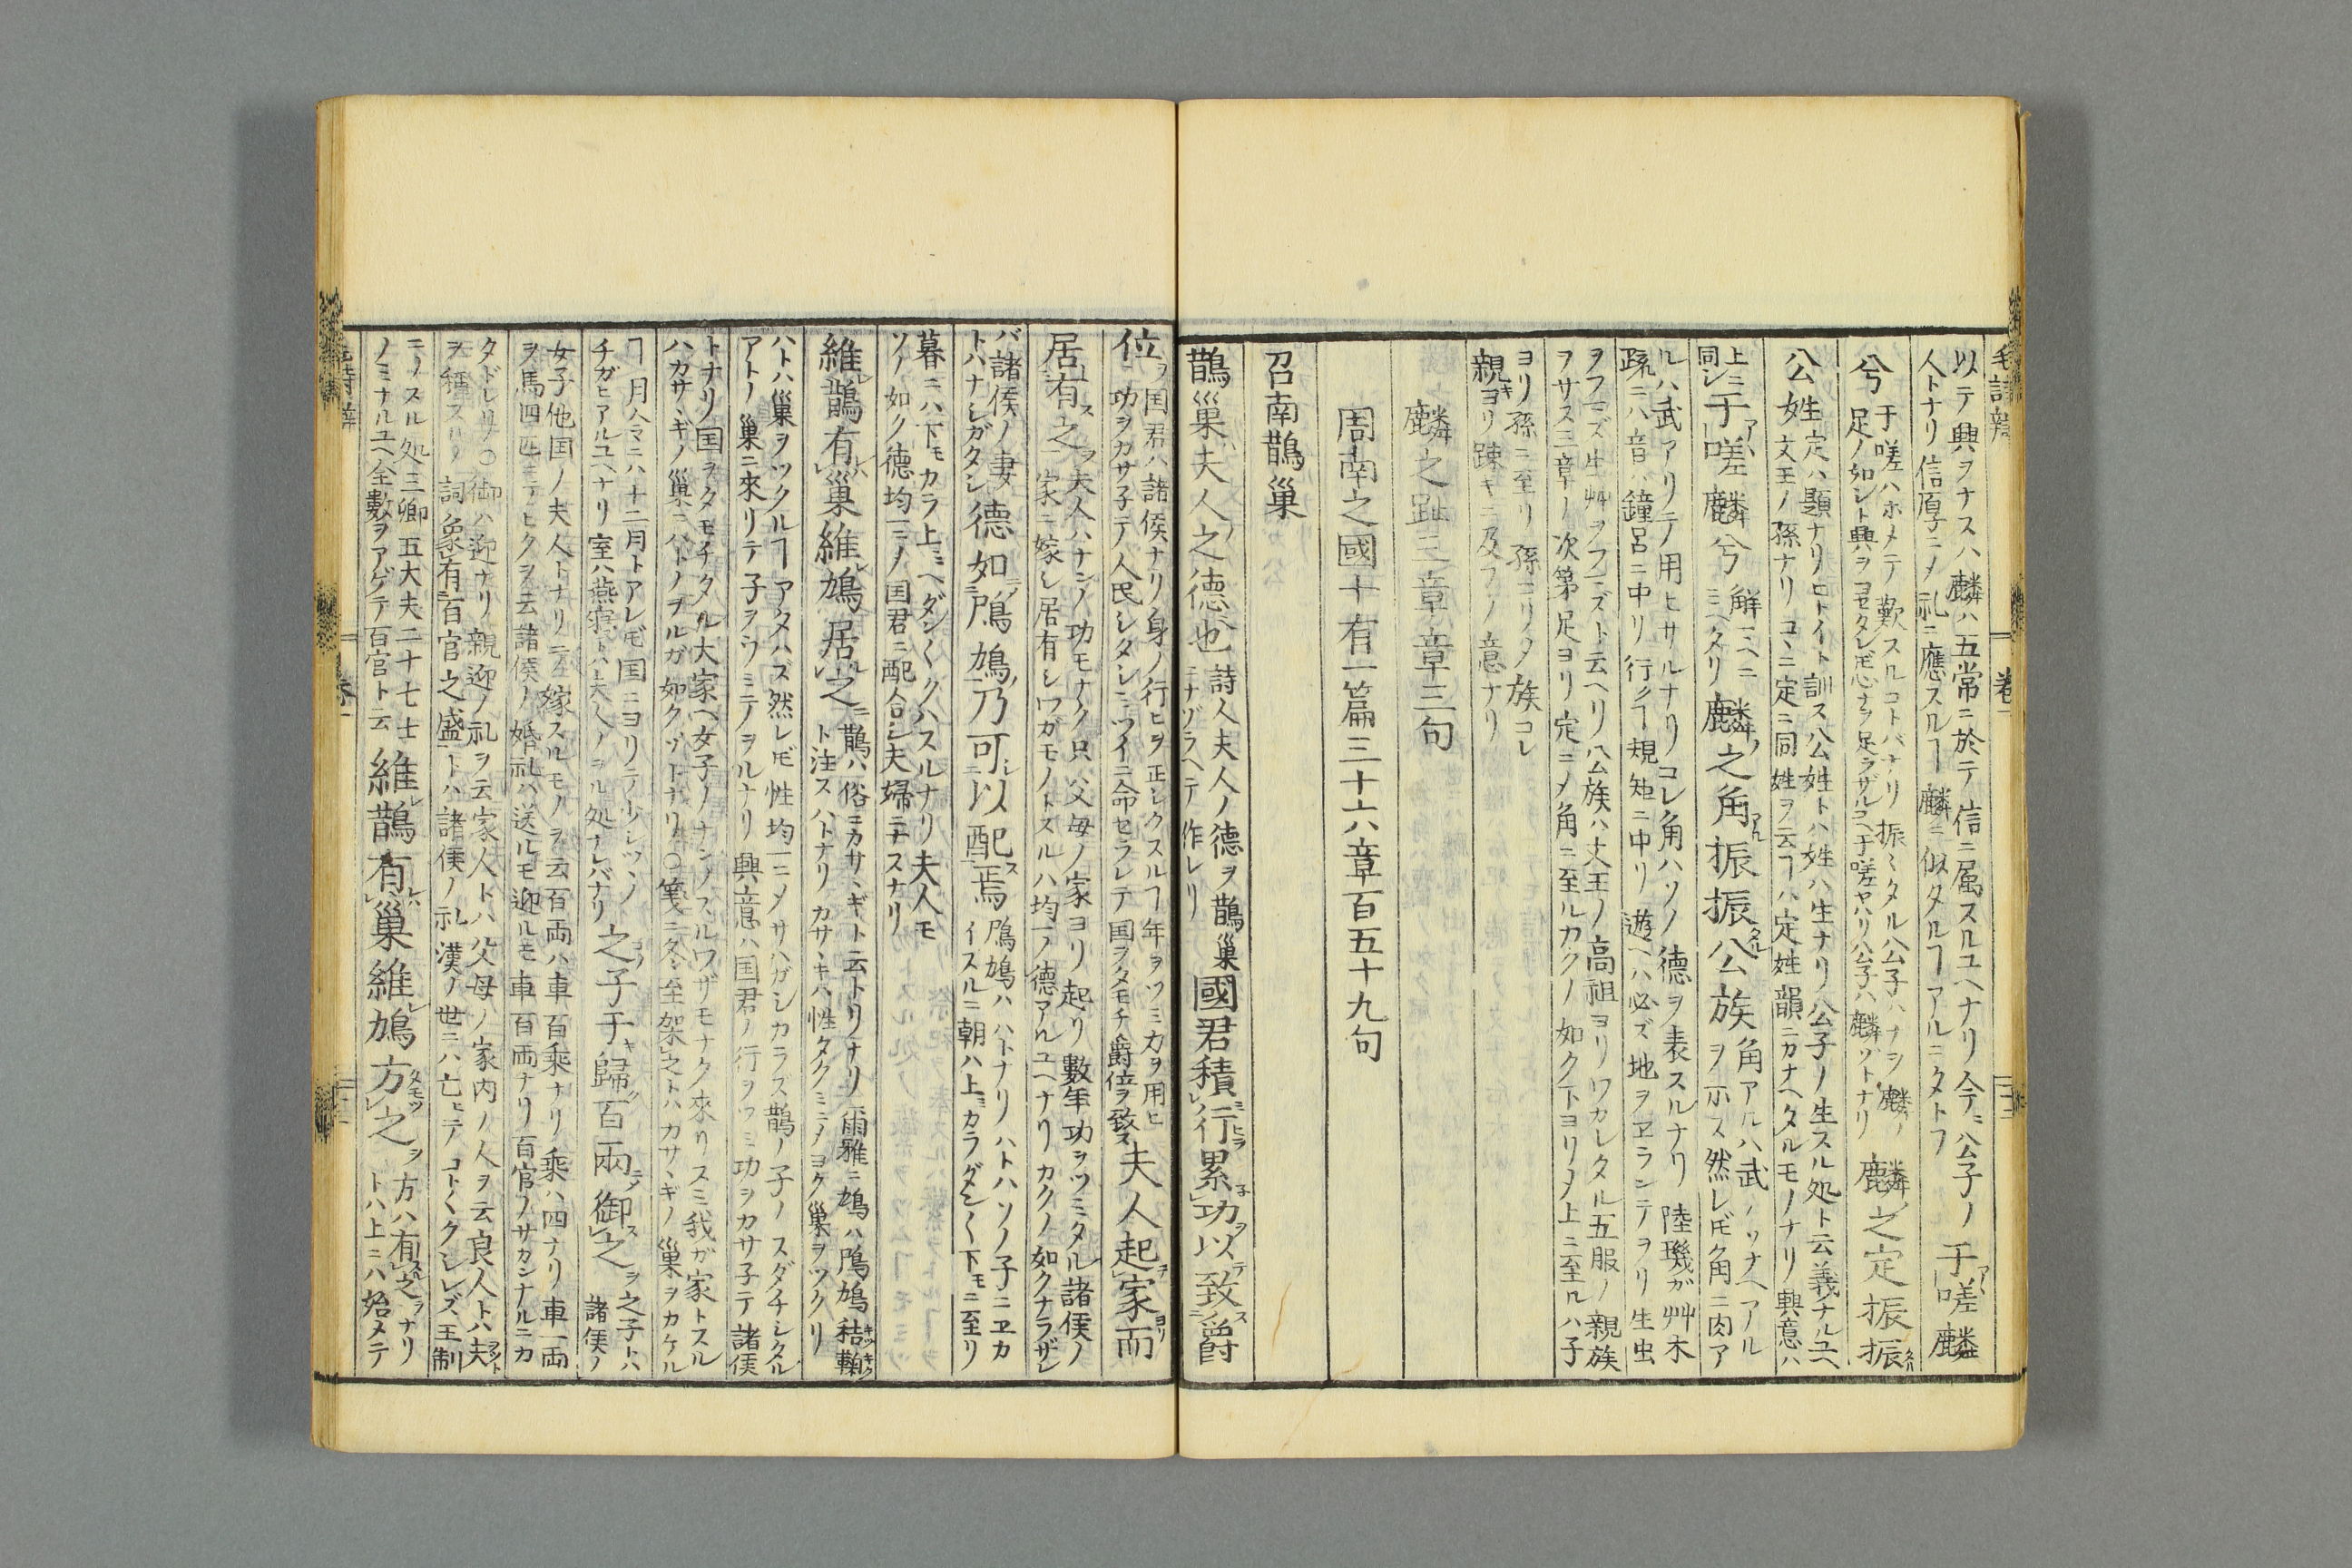 毛詩辨 卷一
以テ興ヲナス八麟ハ五常ニ於テ信ニ属スルユヘナリ今マ公子ノ
人トナリ信厚ニメ礼ニ應スルヿ麟ニ似タルヿアルニタトフ
于嗟麟
兮
于嗟ハホメテ歎スルコトバナリ振〻タル公子ハナヲ麟ノ
足ノ如シト興ヲヨセタレ𪜈心ナヲ足ラザルユヘ于嗟ヤハリ公子ハ麟ゾトナリ
麟之定振振
公姓
定ハ題ナリヒトイト訓ス公姓トハ姓ハ生ナリ公子ノ生スル処ト云義ナルユヘ
文王ノ孫ナリコヽニ定ニ同姓ヲ云ヿハ定姓韻ニカナヘタルモノナリ興意ハ
上ニ
同シ
于嗟麟兮
觧ミヘニ
ミヘタリ
麟之角振振公族
角アルハ武ノソナヘアル
ヲ示ス然レ𪜈角ニ肉ア
ルハ武アリテ用ヒサルナリコレ角ハソノ德ヲ表スルナリ 陸璣が艸木
疏ニハ音ハ鐘呂ニ中リ行クヿ規矩ニ中リ遊ヘハ必ズ地ヲヱランテヲリ生虫
ヲフマズ生艸ヲフマズト云ヘリ公族ハ文王ノ高祖ヨリワカレタル五服ノ親族
ヲサス三章ノ次第足ヨリ定ヨメ角ニ至ルカクノ如ク下ヨリメ上ニ至ルハ子
ヨリ孫ニ至リ孫ヨリメ族コレ
親キヨリ踈キニ及フノ意ナリ
麟之趾三章章三句
周南之國十有一篇三十六章百五十九句
召南鵲巢
鵲巢夫人之德也
詩人夫人ノ德ヲ鵲巢
ニナゾラヘテ作レリ
國君積行累功以致爵
位
国君ハ諸侯ナリ身ノ行ヒヲ正シクスルヿ年ヲツミ力ヲ用ヒ
功ヲカサ子テ人民シタシミツイニ命セラレテ国ヲタモチ爵位ヲ致ス
夫人起家而
居有之
夫人ハナンノ功モナク只父毎ノ家ヨリ起リ數年功ヲツミタル諸侯ノ
家ニ嫁シ居有シワガモノトスルハ均一ノ德アルユヘナリカクノ如クナラザレ
バ諸侯ノ妻
トハナレガタシ
德如鳲鳩乃可以配焉
鳲鳩ハハトナリハトハソノ子ニヱカ
イスルニ朝ハ上ミカラダン〱下モニ至リ
暮ニハ下モカラ上ミヘダン〱クハスルナリ夫人モ
ソノ如ク德均一ニメ国君ニ配合シ夫婦ニナスナリ
維鵲有巢維鳩居之
鵲ハ俗ニカサヽギト云トリナリ爾雅ニ鳩ハ鳲鳩秸鞠
ト注スハトナリカサヽキハ性タクミニメヨク巢ヲツクリ
ハトハ巢ヲツクルヿアタハズ然レ𪜈性均一ニメサハガシカラズ鵲ノ子ノスダチシタル
アトノ巢ニ來リテ子ヲウミテヲルナリ興意ハ国君ノ行ヲツミ功ヲカサ子テ諸侯
トナリ国ヲタモチタル大家ヘ女子ノナンノスルワザモナク來リスミ我ガ家トスル
ハカサヽギノ巢ニハトノヲルガ如クゾトナリ○箋ニ冬至架之トハカサヽギノ巢ヲカケル
ヿ月令ニハ十二月トアレ𪜈国ニヨリテ少シツヽノ
チガヒアルユヘナリ室ハ燕寢トハ夫人ノヲル処ナレバナリ
之子于歸百兩御之
之子トハ
諸侯ノ
女子他国ノ夫人トナリニ嫁スルモノヲ云百両ハ車百乘ナリ乘ハ四ナリ車一両
ヲ馬四匹ニテヒクヲ云諸侯ノ婚礼ハ送ルモ迎ルモ車百両ナリ百官ノサカンナルニカ
タドレリ○御ハ迎ナリ親迎ノ礼ヲ云家人トハ父母ノ家内ノ人ヲ云良人トハ夫
ヲ稱スルノ詞象有百官之盛トハ諸侯ノ礼漢ノ世ニハ亡ヒテコト〱クシレズ王制
ニノスル処三卿五大夫二十七士
ノミナルユヘ全數ヲアゲテ百官ト云
維鵲有巢維鳩方之
方ハ有之ナリ
トハ上ニハ始メテ